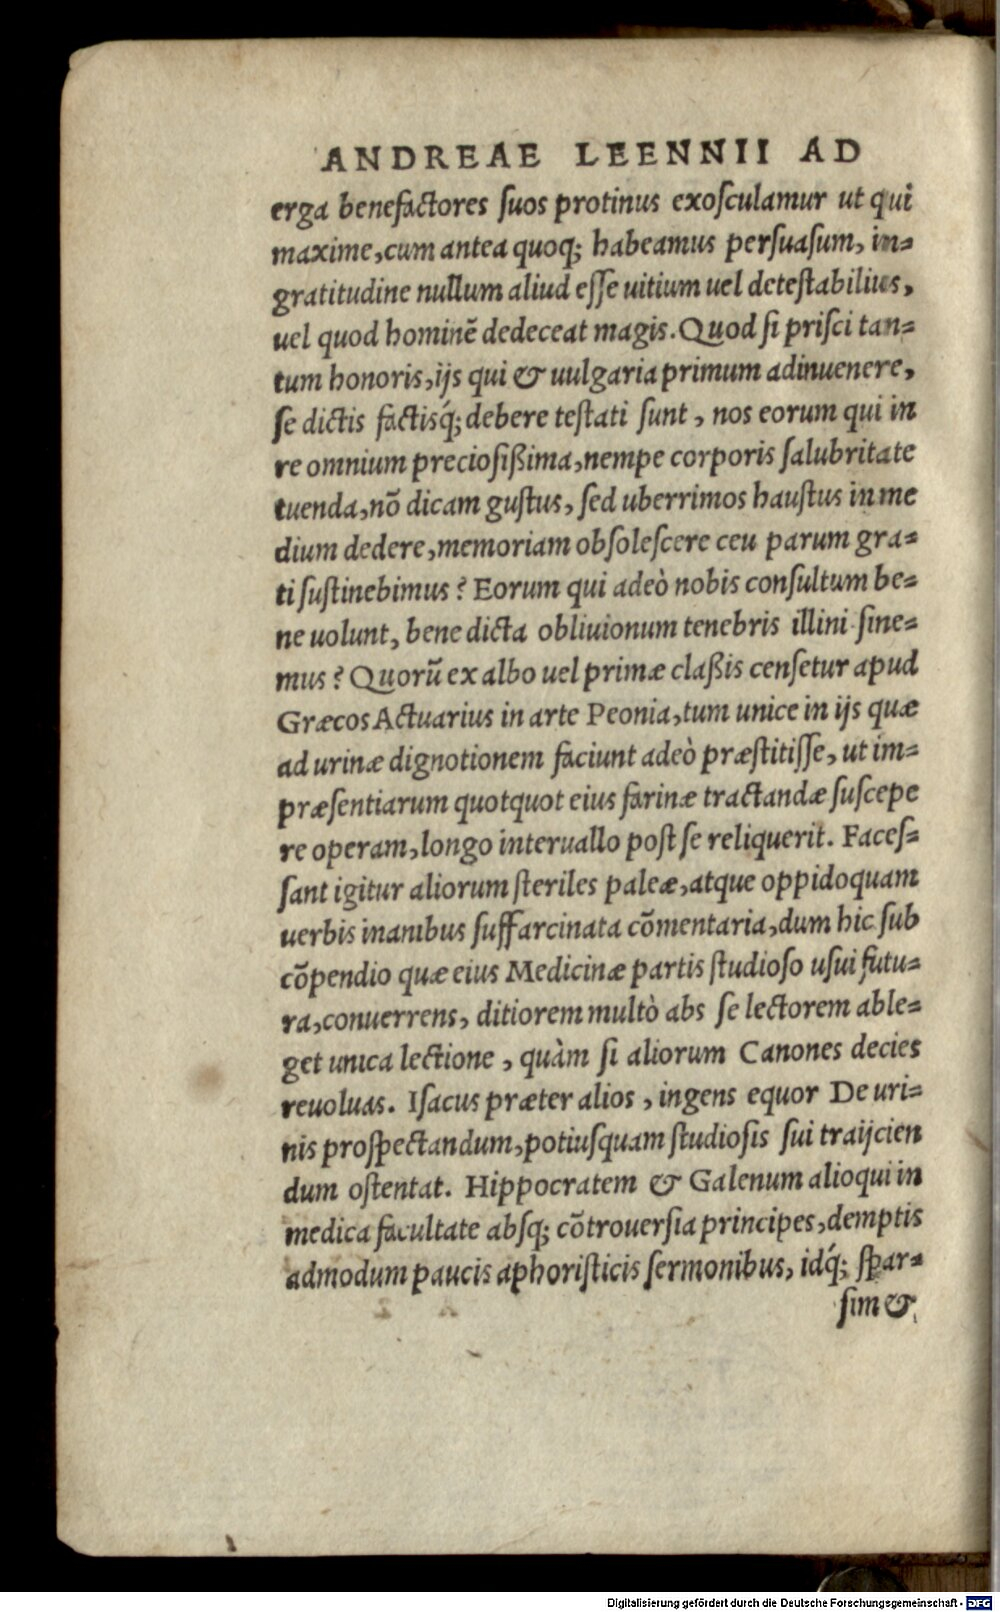 ANDREAE LEENNII AD
erga benefactores ſuos protinus exoſculamur ut qui
maxime, cum antea quoq; habeamus perſuaſum, in⸗
gratitudine nullum aliud eſſe uitium uel deteſtabilius,
uel quod hominē dedeceat magis. Quod ſi priſci tan⸗
tum honoris, ijs qui & uulgaria primum adinuenere,
ſe dictis factisq́; debere teſtati ſunt, nos eorum qui in
re omnium precioſißima, nempe corporis ſalubritate
tuenda, nō dicam guſtus, ſed uberrimos hauſtus in me
dium dedere, memoriam obſoleſcere ceu parum gra⸗
ti ſuſtinebimus? Eorum qui adeò nobis conſultum be⸗
ne uolunt, bene dicta obliuionum tenebris illini ſine⸗
mus? Quorū ex albo uel primæ claßis cenſetur apud
Græcos Actuarius in arte Peonia, tum unice in ijs quæ
ad urinæ dignotionem faciunt adeò præſtitiſſe, ut im⸗
præſentiarum quotquot eius farinæ tractandæ ſuſcepe
re operam, longo interuallo poſt ſe reliquerit. Faceſ⸗
ſant igitur aliorum ſteriles paleæ, atque oppidoquam
uerbis inanibus ſuffarcinata cōmentaria, dum hic ſub
cōpendio quæ eius Medicinæ partis ſtudioſo uſui futu⸗
ra, conuerrens, ditiorem multò abs ſe lectorem able⸗
get unica lectione, quàm ſi aliorum Canones decies
reuoluas. Iſacus præter alios, ingens equor De uri⸗
nis proſpectandum, potiuſquam ſtudioſis ſui traijcien
dum oſtentat. Hippocratem & Galenum alioqui in
medica facultate abſq; cōtrouerſia principes, demptis
admodum paucis aphoriſticis ſermonibus, idq́; ſpar⸗
ſim &
Digitalisierung gefördert durch die Deutsche Forschungsgemeinschaft - DFG